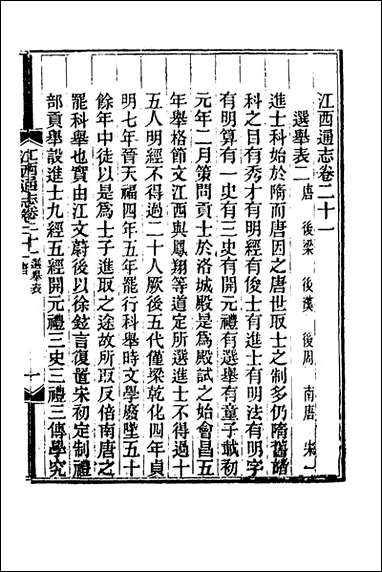 江西通志卷二十一
選舉表二唐 後梁 後漢 後周 南唐 宋一
進士科始於隋而唐因之唐世取士之制多仍隋舊諸
科之目有秀才有明經有俊士有進士有明法有明字
有明算有一史有三史有開元禮有選舉有童子載初
元年二月策問貢士於洛城殿是為殿試之始會昌五
年舉格節文江西與鳳翔等道定所選進士不得過十
五人明經不得過二十人厥後五代僅梁乾化四年貞
明七年晉天福四年五年罷行科舉時文學廢墜五十
餘年中徒以是為士子進取之途故所取反倍南唐之
罷科舉也實由江文蔚後以徐鉉言復置宋初定制禮
部貢舉設進士九經五經開元禮三史三禮三傳學究
江西通志卷二十一 選舉表 唐 一